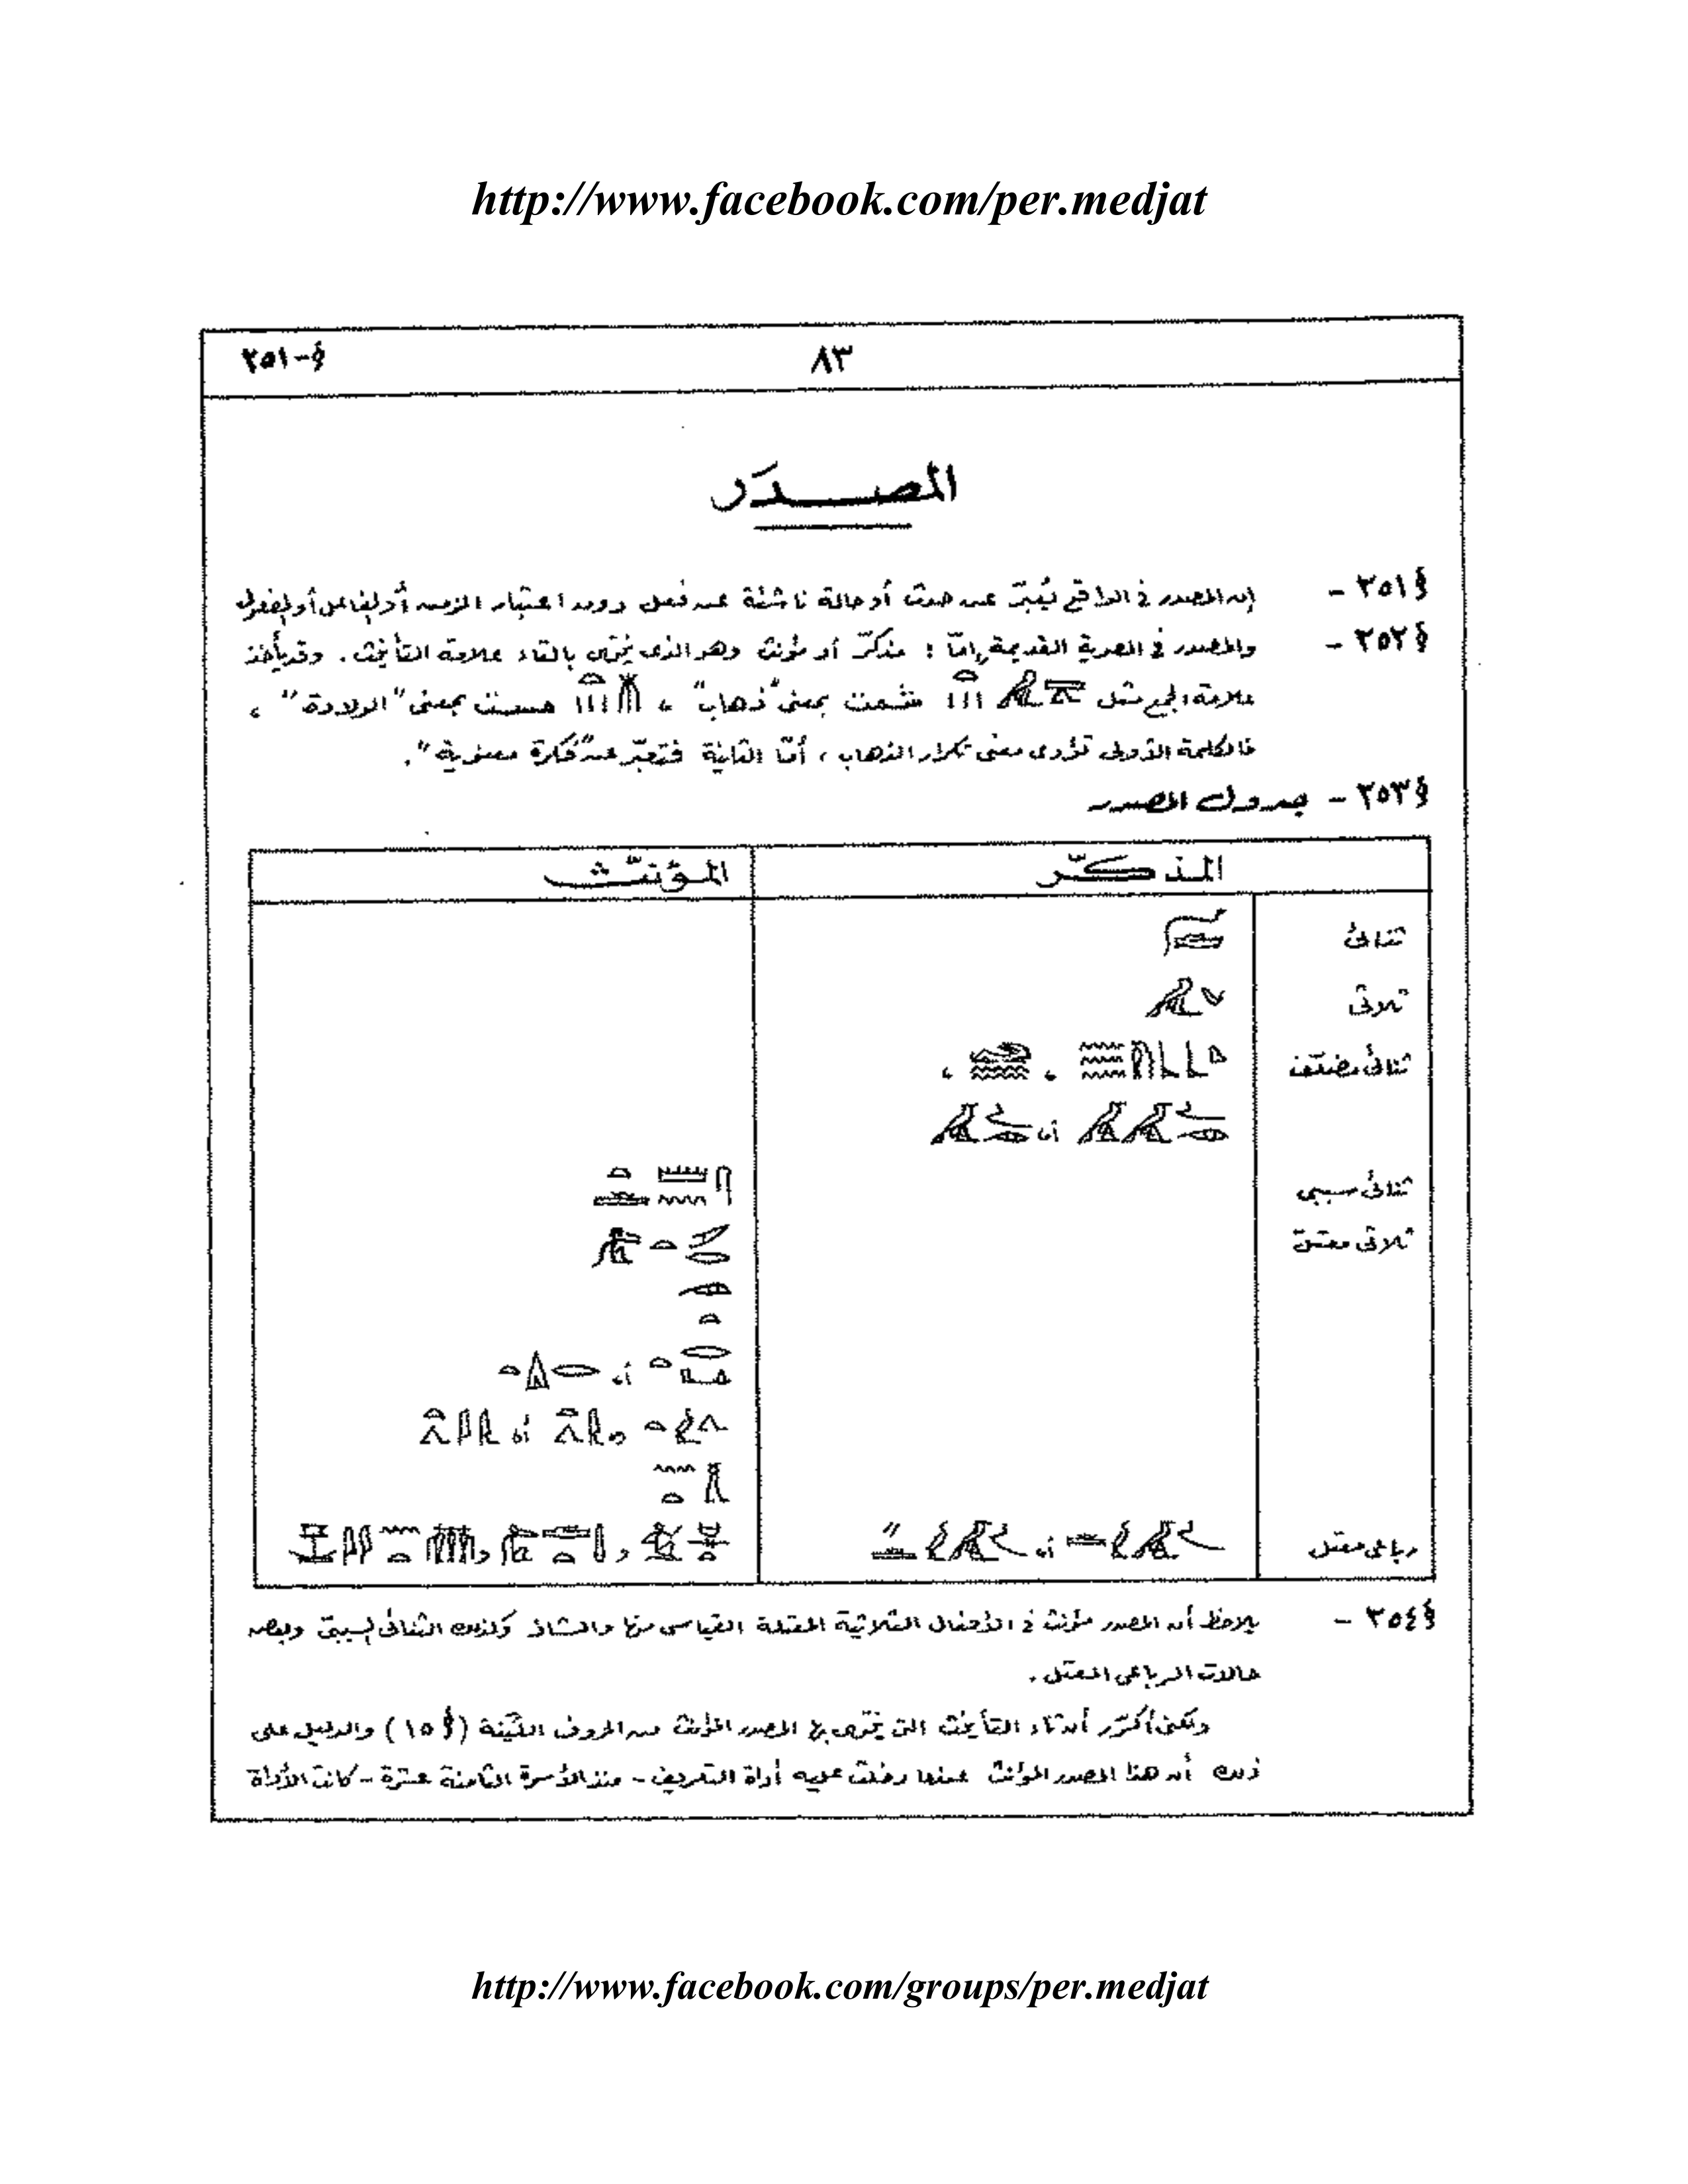 http://www.facebook.com/per.medjat
§-٢٥١
٨٣
المصدر
§٢٥١ - إن المصدر في الواقع يُعبّر عن حدث أو حالة ناشئة عن فعل دون اعتبار الزمن أو الفاعل أو المفعول
§٢٥٢ - والمصدر في المصرية القديمة إمّا : مذكّر أو مؤنث وهو الذي ينتهى بالتاء علامة التأنيث . وقد يأخذ
علامة الجمع مثل شمت بمعنى "ذهاب" ، مسيت بمعنى "الولادة" ،
فالكلمة الأولى تؤدى معنى تكرار الذهاب ، أمّا الثانية فتعبّر عن "فكرة معنوية" .
§٢٥٣ - جدول المصدر
المذكّر
المؤنّث
ثنائى
ثلاثى
ثنائى مضعّف
، ،
أو
ثنائى سببى
ثلاثى معتل
أو
أو
رباعى معتل
أو
§٢٥٤ - يلاحظ أن المصدر مؤنث في الأفعال الثلاثية المعتلة القياسى منها والشاذ وكذلك الثنائى السببى وبعض
حالات الرباعى المعتل .
ولكنى أكرّر أن تاء التأنيث التى ينتهى بها المصدر المؤنث من الحروف الليّنة (§ ١٥) والدليل على
ذلك أن هذا المصدر المؤنث عندما دخلت عليه أداة التعريف - منذ الأسرة الثامنة عشرة - كانت الأداة
http://www.facebook.com/groups/per.medjat